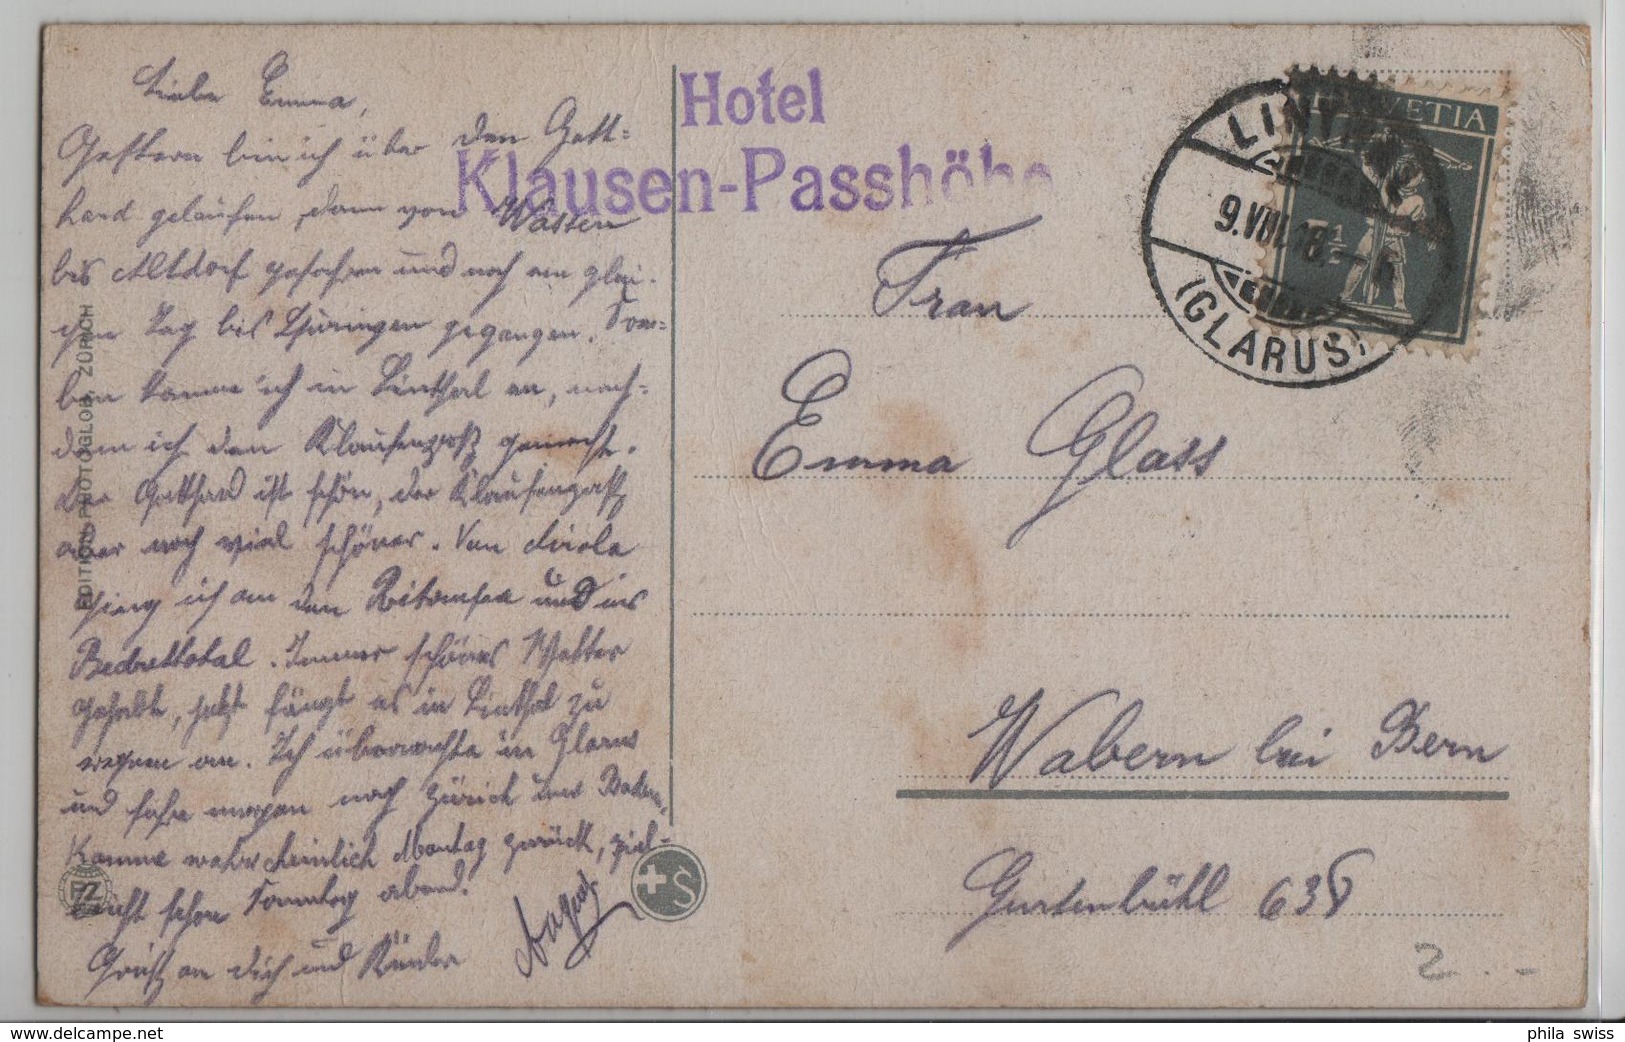 Liebe Emma,
Gestern bin ich über den Gott=
hard gelaufen, dann von Wassen
bis Altdorf gefahren und noch am glei-
chen Tag bis Thüringen gegangen. So=
ben komme ich in Linthal an, nach=
dem ich den Klausenpass gemacht.
der Gotthard ist schön, der Klausenpass
aber noch viel schöner. Von Airolo
ging ich an den Ritomsee und ins
Bedrettotal. Immer schönes Wetter
gehabt, jetzt fängt es in Linthal zu
regnen an. Ich übernachte in Glarus
und fahre morgen nach Zürich und Baden,
Komme wahrscheinlich Montag zurück, viel-
leicht schon Sonntag abend.
Gruss an dich und Kinder
Hotel
Klausen-Passhöhe
HELVETIA
LINTHAL
9.VIII.18.
(GLARUS)
Frau
Emma Glass
Wabern bei Bern
Gurtenbühl 638
2
EDITION PHOTOGLOB, ZÜRICH
PZ
S
http://www.delcampe.net
phila_swiss